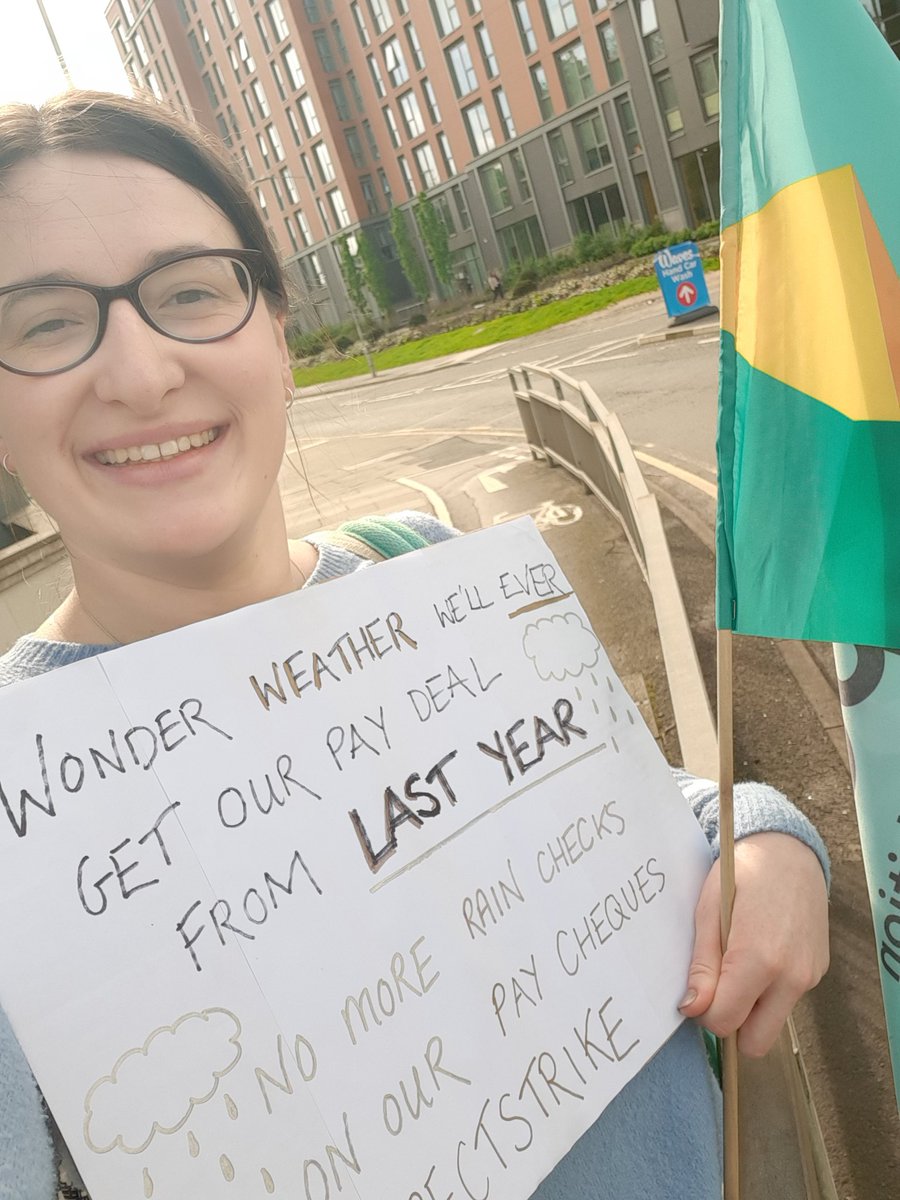 WONDER WEATHER WE'LL EVER
GET OUR PAY DEAL
FROM LAST YEAR
NO MORE RAIN CHECKS
ON OUR PAY CHEQUES
ECTSTRIKE
Waves
Hand Car
Wash